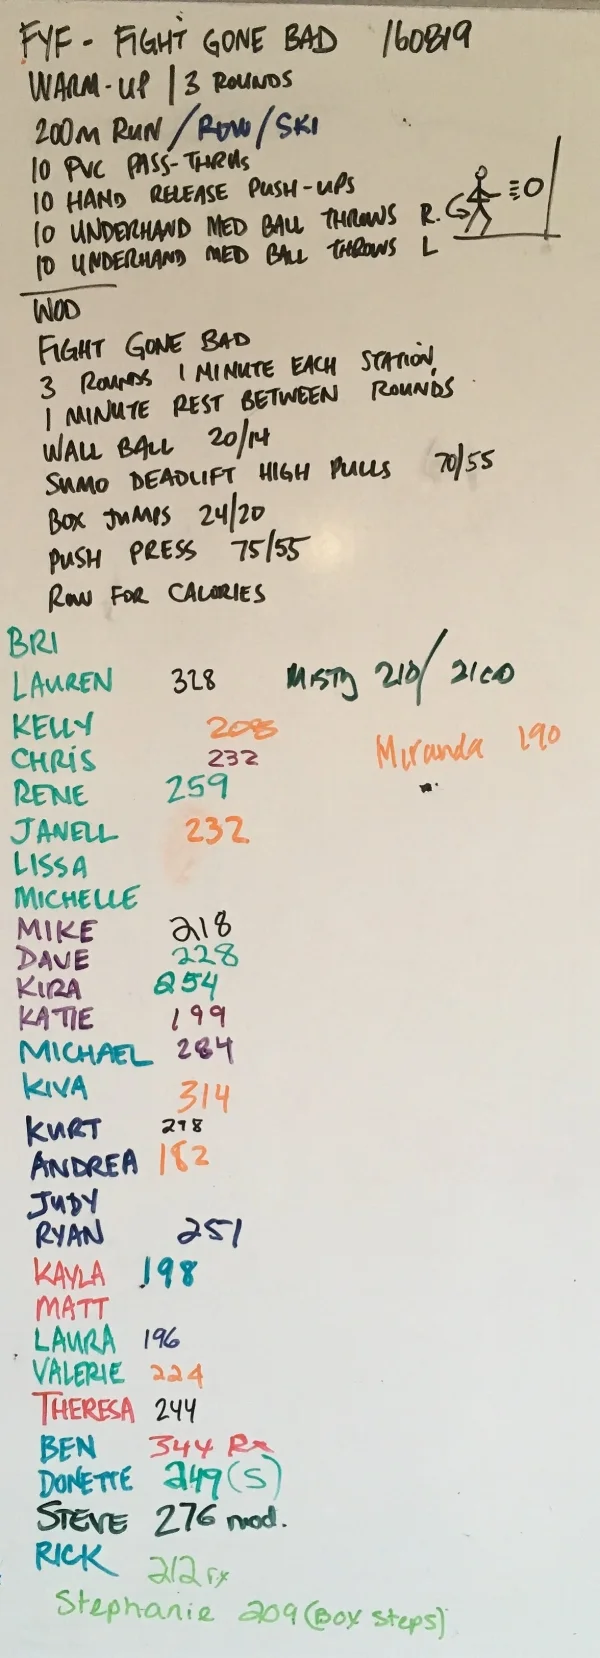 FYF - FIGHT GONE BAD 160819
WARM-UP / 3 ROUNDS
200M RUN / ROW / SKI
10 PVC PASS-THRUS
10 HAND RELEASE PUSH-UPS
10 UNDERHAND MED BALL THROWS R.
10 UNDERHAND MED BALL THROWS L
WOD
FIGHT GONE BAD
3 ROUNDS 1 MINUTE EACH STATION,
1 MINUTE REST BETWEEN ROUNDS
WALL BALL 20/14
SUMO DEADLIFT HIGH PULLS 70/55
BOX JUMPS 24/20
PUSH PRESS 75/55
ROW FOR CALORIES
BRI
LAUREN 328 Misty 210/
KELLY
CHRIS 232 Miranda 190
RENE 259
JANELL 232
LISSA
MICHELLE
MIKE 218
DAVE 228
KIRA 254
KATIE 199
MICHAEL 284
KIVA 314
KURT 298
ANDREA 182
JUDY
RYAN 251
KAYLA 198
MATT
LAURA 196
VALERIE 224
THERESA 244
BEN 344 Rx
DONETTE 249 (S)
STEVE 276 mod.
RICK 212 rx
Stephanie 209 (Box Steps)